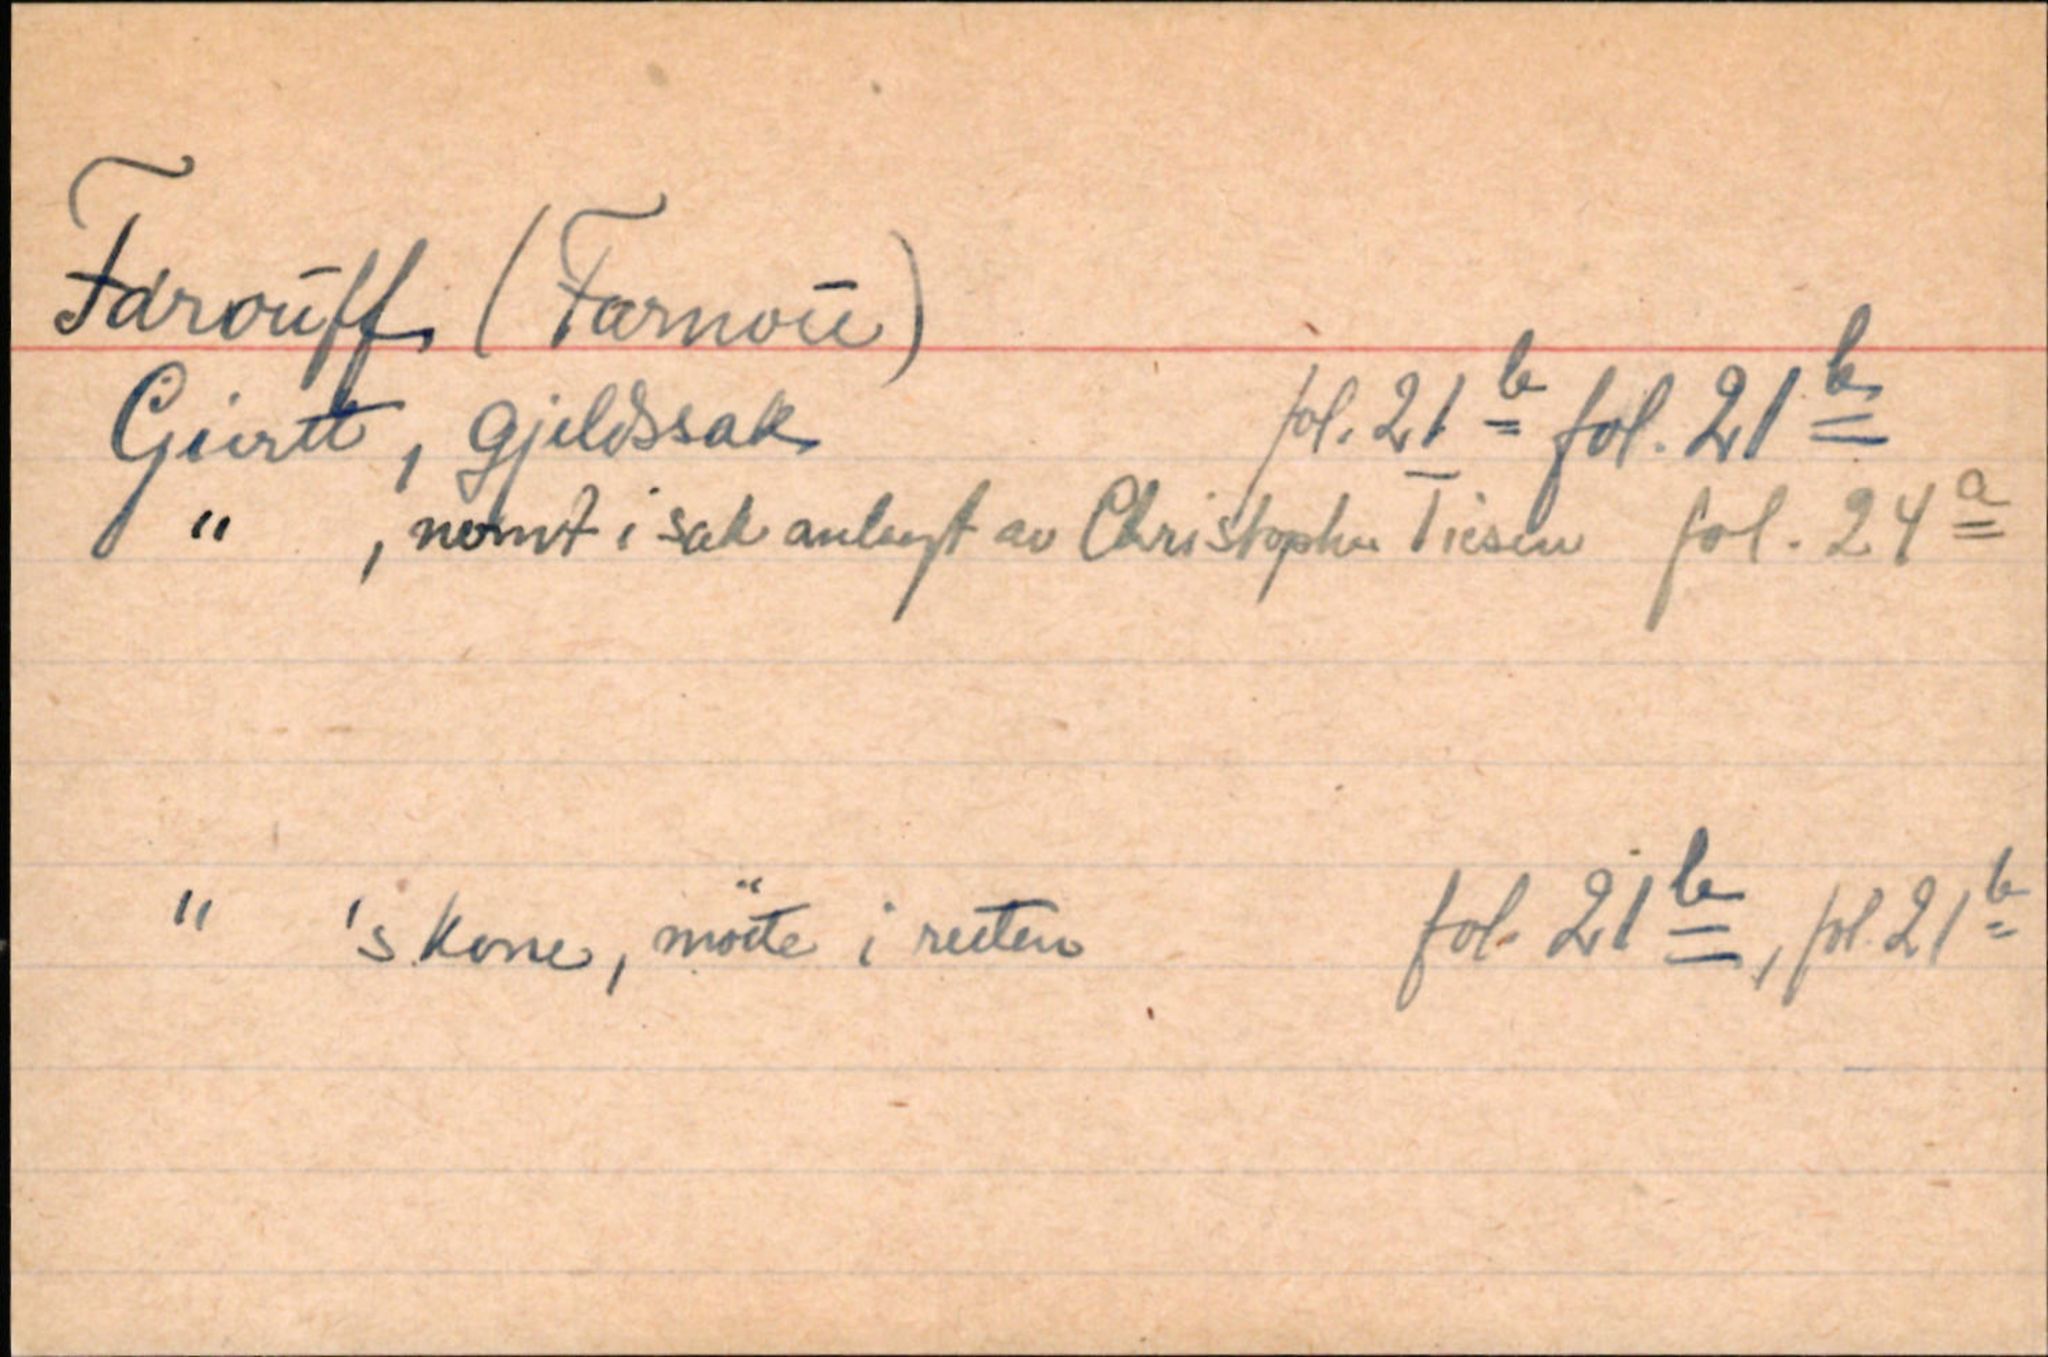 Farouff (Farnou)
Giertt, gjeldssak fol. 21 b fol. 21 b
" , nevnt i sak anlagt av Christopher Tiesen fol. 24 a
" 's kone, møtte i retten fol. 21 b, fol. 21 b